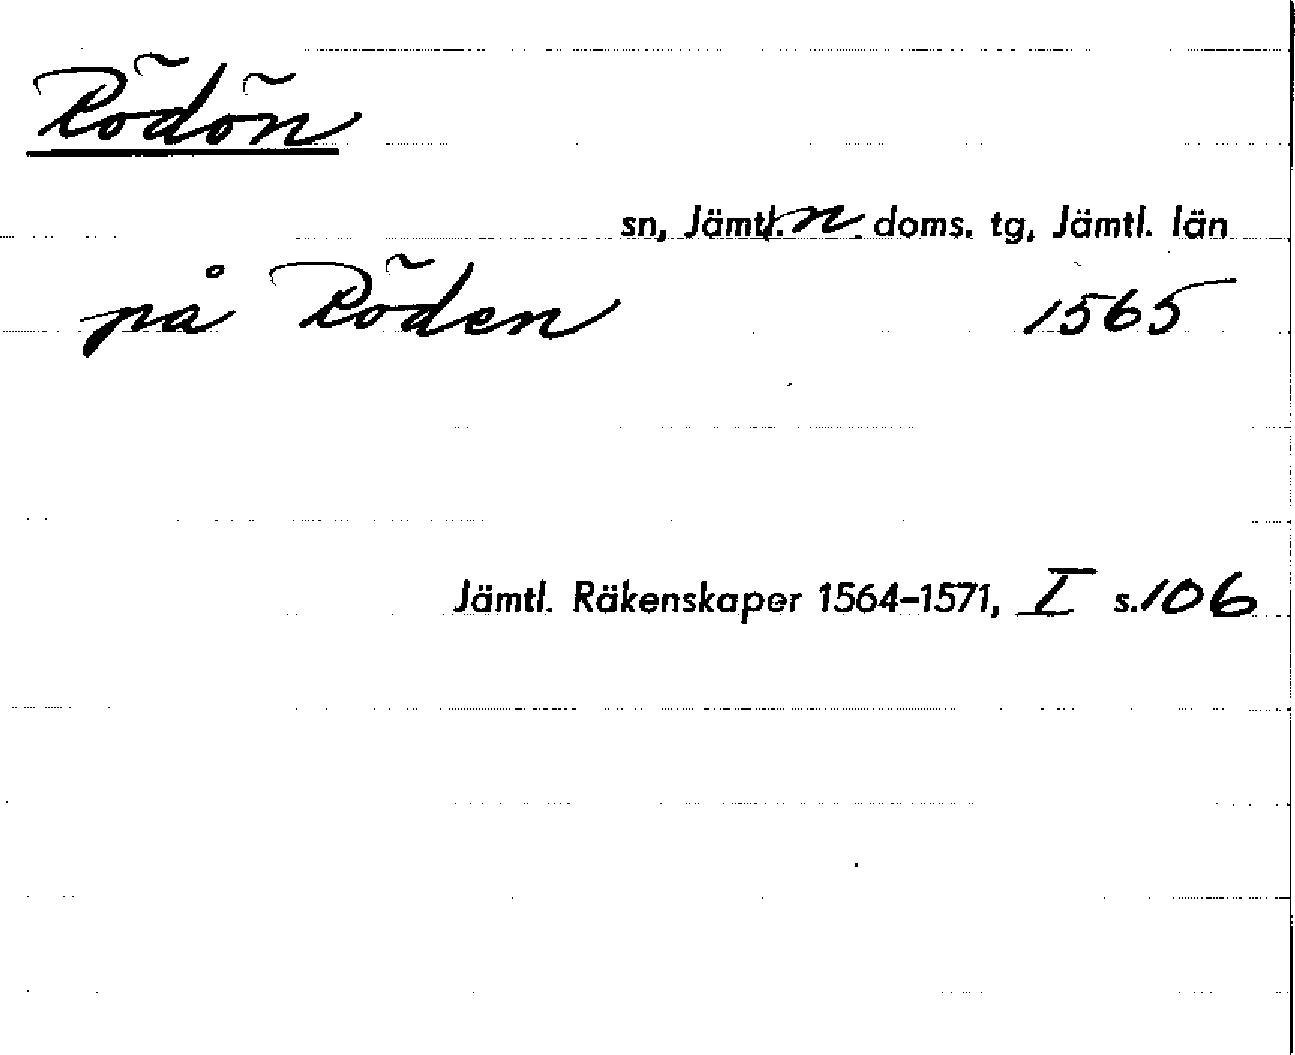 Rödön
sn, Jämtl. n doms. tg, Jämtl. län
på Röden 1565
Jämtl. Räkenskaper 1564-1571, I s. 106